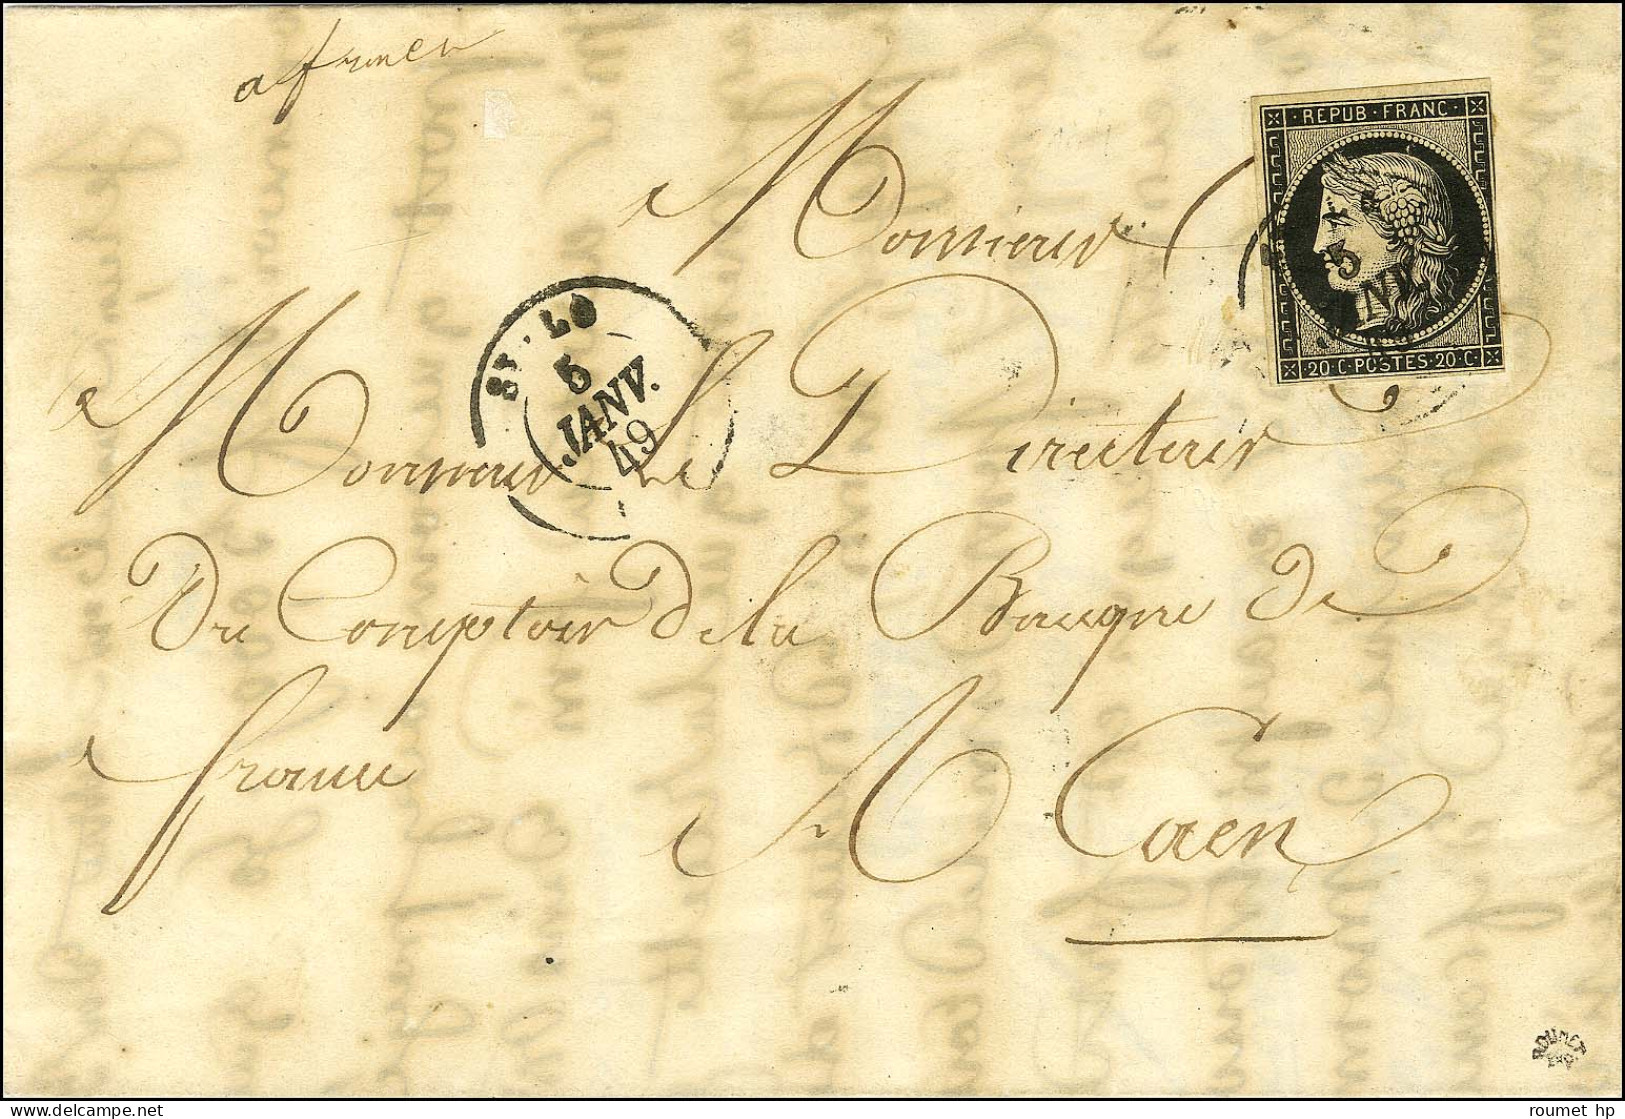 REPUB · FRANC ·
· 20 · C · POSTES · 20 · C ·
5
JANV
ST-LO
5
JANV.
49
Monsieur
Monsieur Le Directeur
Du Comptoir de la Banque de
france
A Caen
ROUMET
delcampe.net
roumet hp